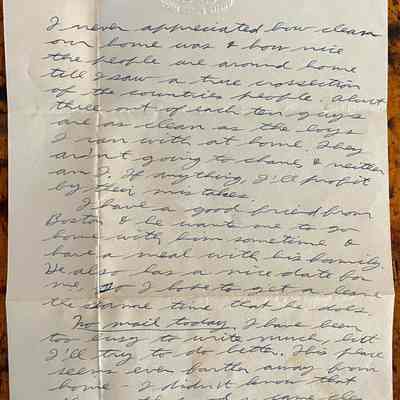 I never appreciated how clean
our home was & how nice
the people are around home
till I saw a true crossection
of the countries people. About
three out of each ten guys
are as clean as the boys
I ran with at home. They
arn't going to change & neither
am I. If anything, I'll profit
by their mistakes.
I have a good friend from
Boston & he wants me to go
home with him sometime &
have a meal with his family.
He also has a nice date for
me, so I hope to get a leave
the same time that he does.
No mail today. I have been
too busy to write much, but
I'll try to do better. This place
seems even farther away from
home - I didn't know that